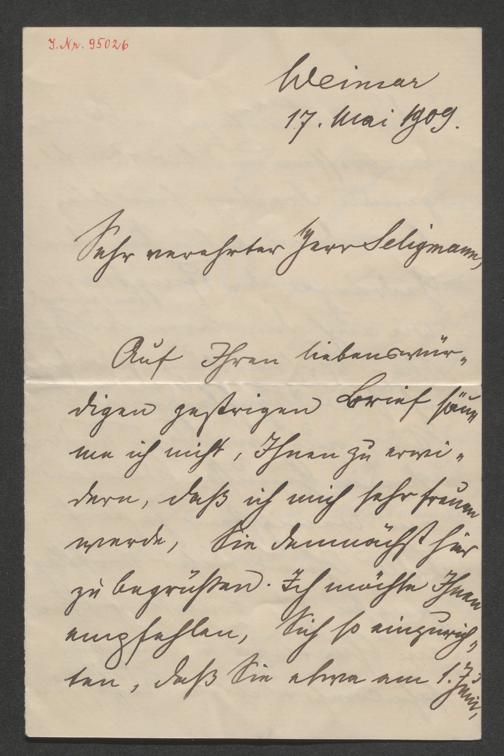 J.Nr. 95026
Weimar
17. Mai 1909.
Sehr verehrter Herr Seligmann,
Auf Ihren liebenswür-
digen gestrigen Brief säu-
me ich nicht, Ihnen zu erwi-
dern, daß ich mich sehr freuen
werde, Sie demnächst hier
zu begrüßen. Ich möchte Ihnen
empfehlen, Sich so einzurich-
ten, daß Sie etwa am 1. Juni,